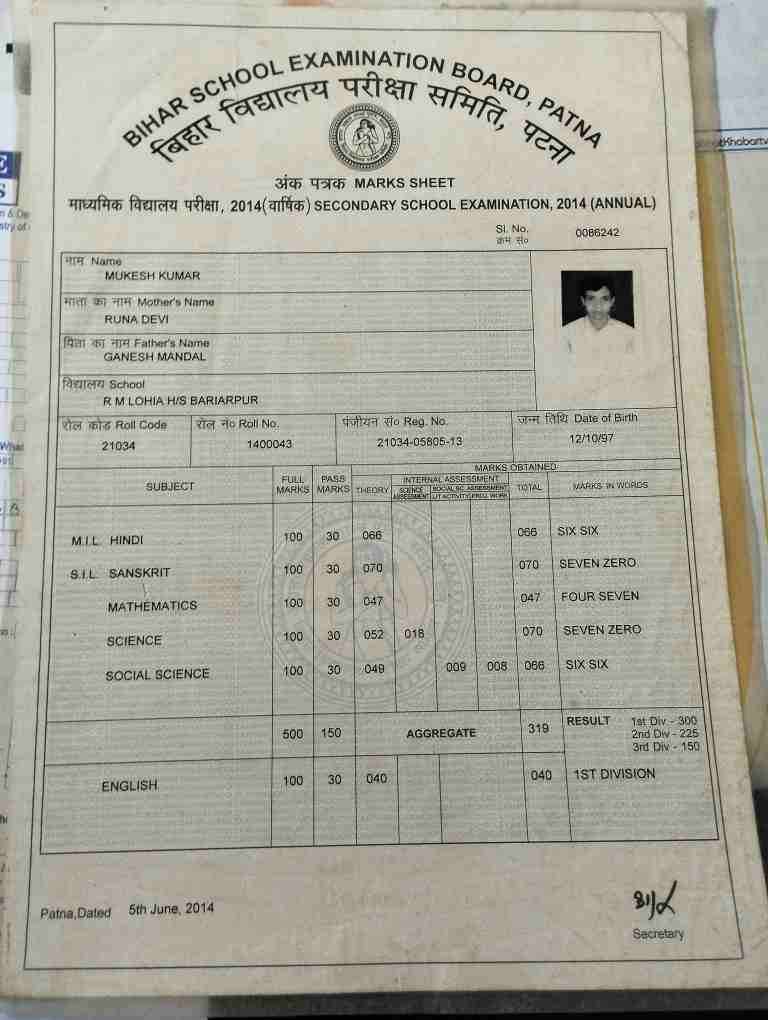 BIHAR SCHOOL EXAMINATION BOARD, PATNA
बिहार विद्यालय परीक्षा समिति, पटना
अंक पत्रक MARKS SHEET
माध्यमिक विद्यालय परीक्षा, 2014(वार्षिक) SECONDARY SCHOOL EXAMINATION, 2014 (ANNUAL)
Sl. No. 0086242
क्रम सं०
नाम Name
MUKESH KUMAR
माता का नाम Mother's Name
RUNA DEVI
पिता का नाम Father's Name
GANESH MANDAL
विद्यालय School
R M LOHIA H/S BARIARPUR
रोल कोड Roll Code रोल नं० Roll No. पंजीयन सं० Reg. No. जन्म तिथि Date of Birth
21034 1400043 21034-05805-13 12/10/97
SUBJECT FULL MARKS PASS MARKS MARKS OBTAINED
THEORY INTERNAL ASSESSMENT TOTAL MARKS IN WORDS
SCIENCE ASSESSMENT SOCIAL SC. ASSESSMENT
LIT.ACTIVITY PROJ. WORK
M.I.L. HINDI 100 30 066 066 SIX SIX
S.I.L. SANSKRIT 100 30 070 070 SEVEN ZERO
MATHEMATICS 100 30 047 047 FOUR SEVEN
SCIENCE 100 30 052 018 070 SEVEN ZERO
SOCIAL SCIENCE 100 30 049 009 008 066 SIX SIX
500 150 AGGREGATE 319 RESULT 1st Div - 300
2nd Div - 225
3rd Div - 150
ENGLISH 100 30 040 040 1ST DIVISION
Patna,Dated 5th June, 2014
Secretary